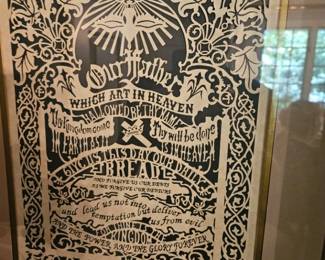 Our Father
WHICH ART IN HEAVEN
HALLOWED BE THY NAME
Thy kingdom come Thy will be done
IN EARTH AS IT IS IN HEAVEN
GIVE US THIS DAY OUR DAILY
BREAD
AND FORGIVE US OUR DEBTS
AS WE FORGIVE OUR DEBTORS
and lead us not into
temptation but deliver
us from evil
FOR THINE IS THE
KINGDOM
AND THE POWER AND THE GLORY FOREVER